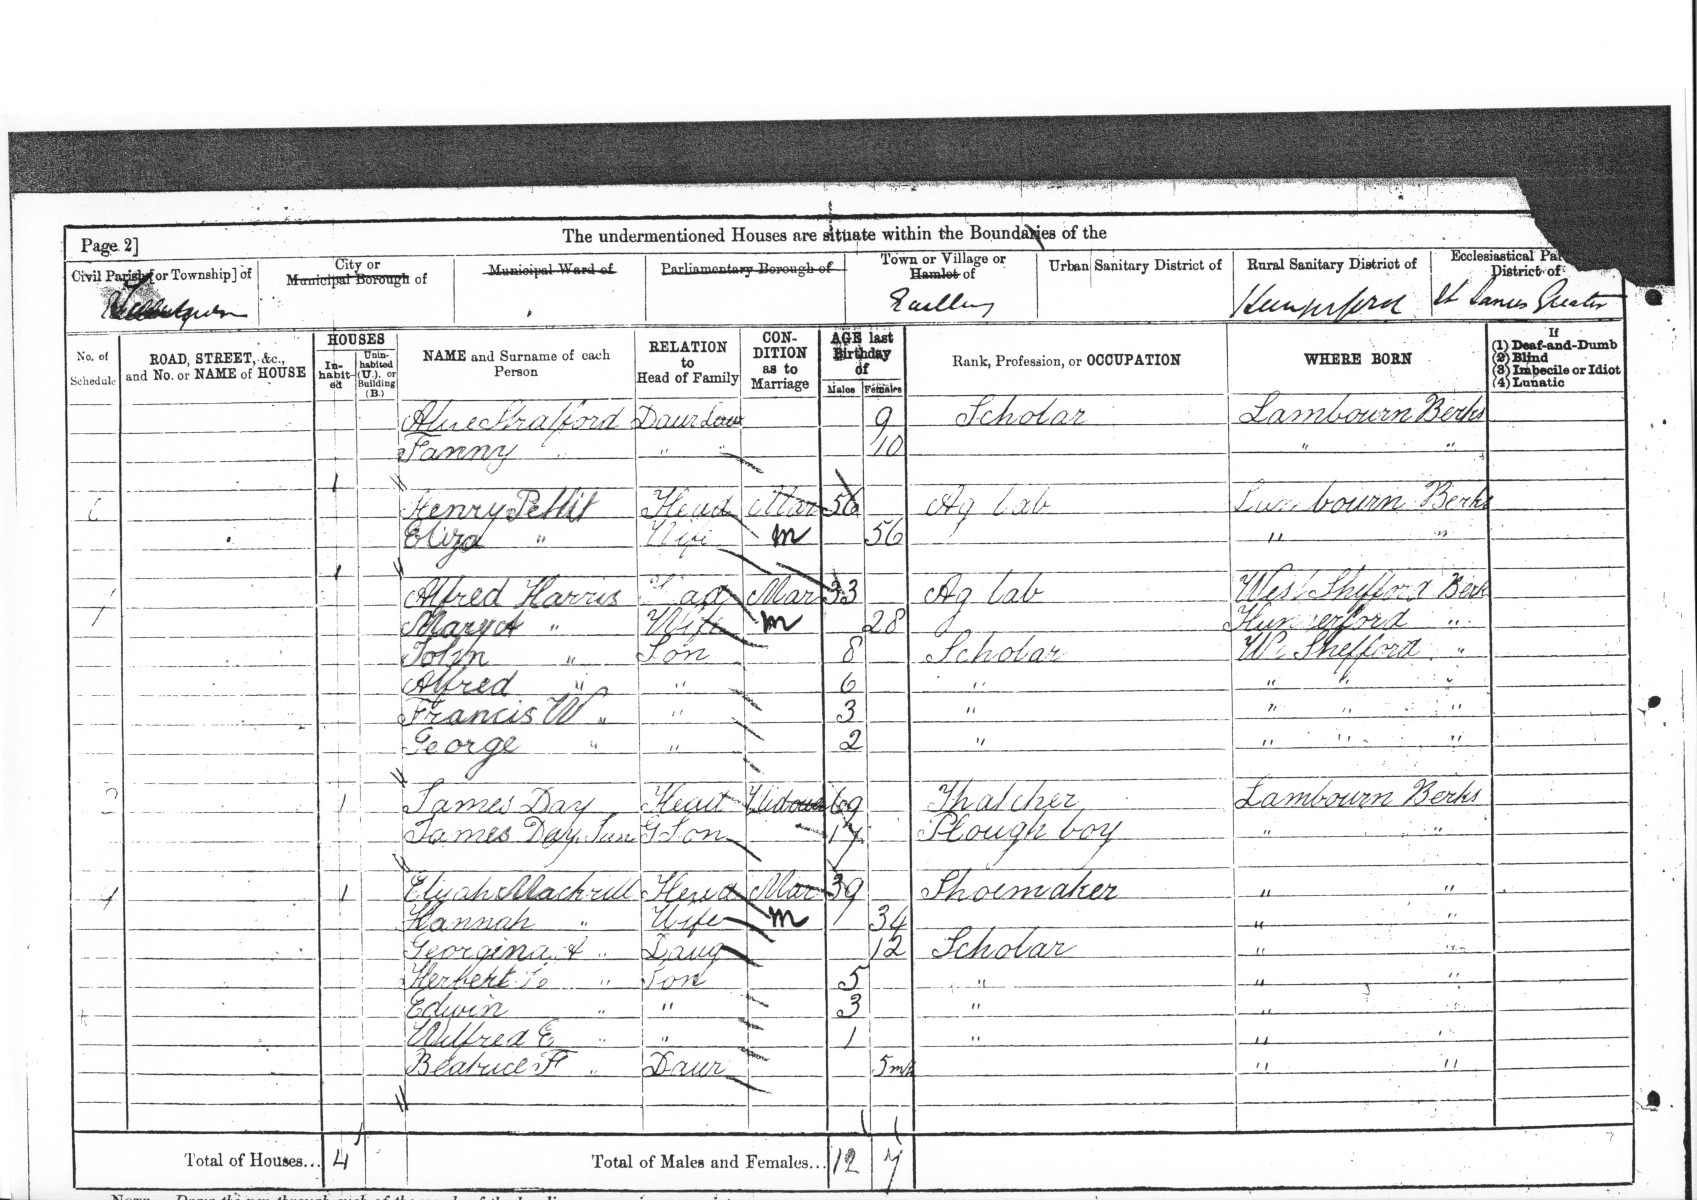 Page 2]
The undermentioned Houses are situate within the Boundaries of the
Civil Parish [or Township] of
City or Municipal Borough of
Municipal Ward of
Parliamentary Borough of
Town or Village or Hamlet of
Urban Sanitary District of
Rural Sanitary District of
Ecclesiastical Pa
District of
Hungerford St James
No. of Schedule
ROAD, STREET, &c., and No. or NAME of HOUSE
HOUSES
In-habit-ed
Unin-habited (U.), or Building (B.)
NAME and Surname of each Person
RELATION to Head of Family
CON-DITION as to Marriage
AGE last Birthday of
Males Females
Rank, Profession, or OCCUPATION
WHERE BORN
If
(1) Deaf-and-Dumb
(2) Blind
(3) Imbecile or Idiot
(4) Lunatic
9 Scholar Lambourn Berks
Fanny " " 10 " "
1
6 Henry Pettit Head Mar 56 Ag Lab Lambourn Berks
Eliza " Wife m 56 " "
1
Alfred Harris Head Mar 33 Ag Lab West Shefford Berk
Mary A " Wife m 28 Hungerford "
John " Son 8 Scholar W. Shefford "
Alfred " " 6 " " " "
Francis W " " 3 " " " "
George " " 2 " " " "
1 James Day Head Widower 69 Thatcher Lambourn Berks
James Day Jun G Son 17 Plough boy " "
1 Elijah Mackrill Head Mar 39 Shoemaker " "
Hannah " Wife m 34 " "
Georgina A " Daug 12 Scholar " "
Herbert " Son 5 " " "
Edwin " " 3 " " "
Wilfred E " " 1 " " "
Beatrice F " Daur 5 mth " "
Total of Houses... 4
Total of Males and Females... 12 7